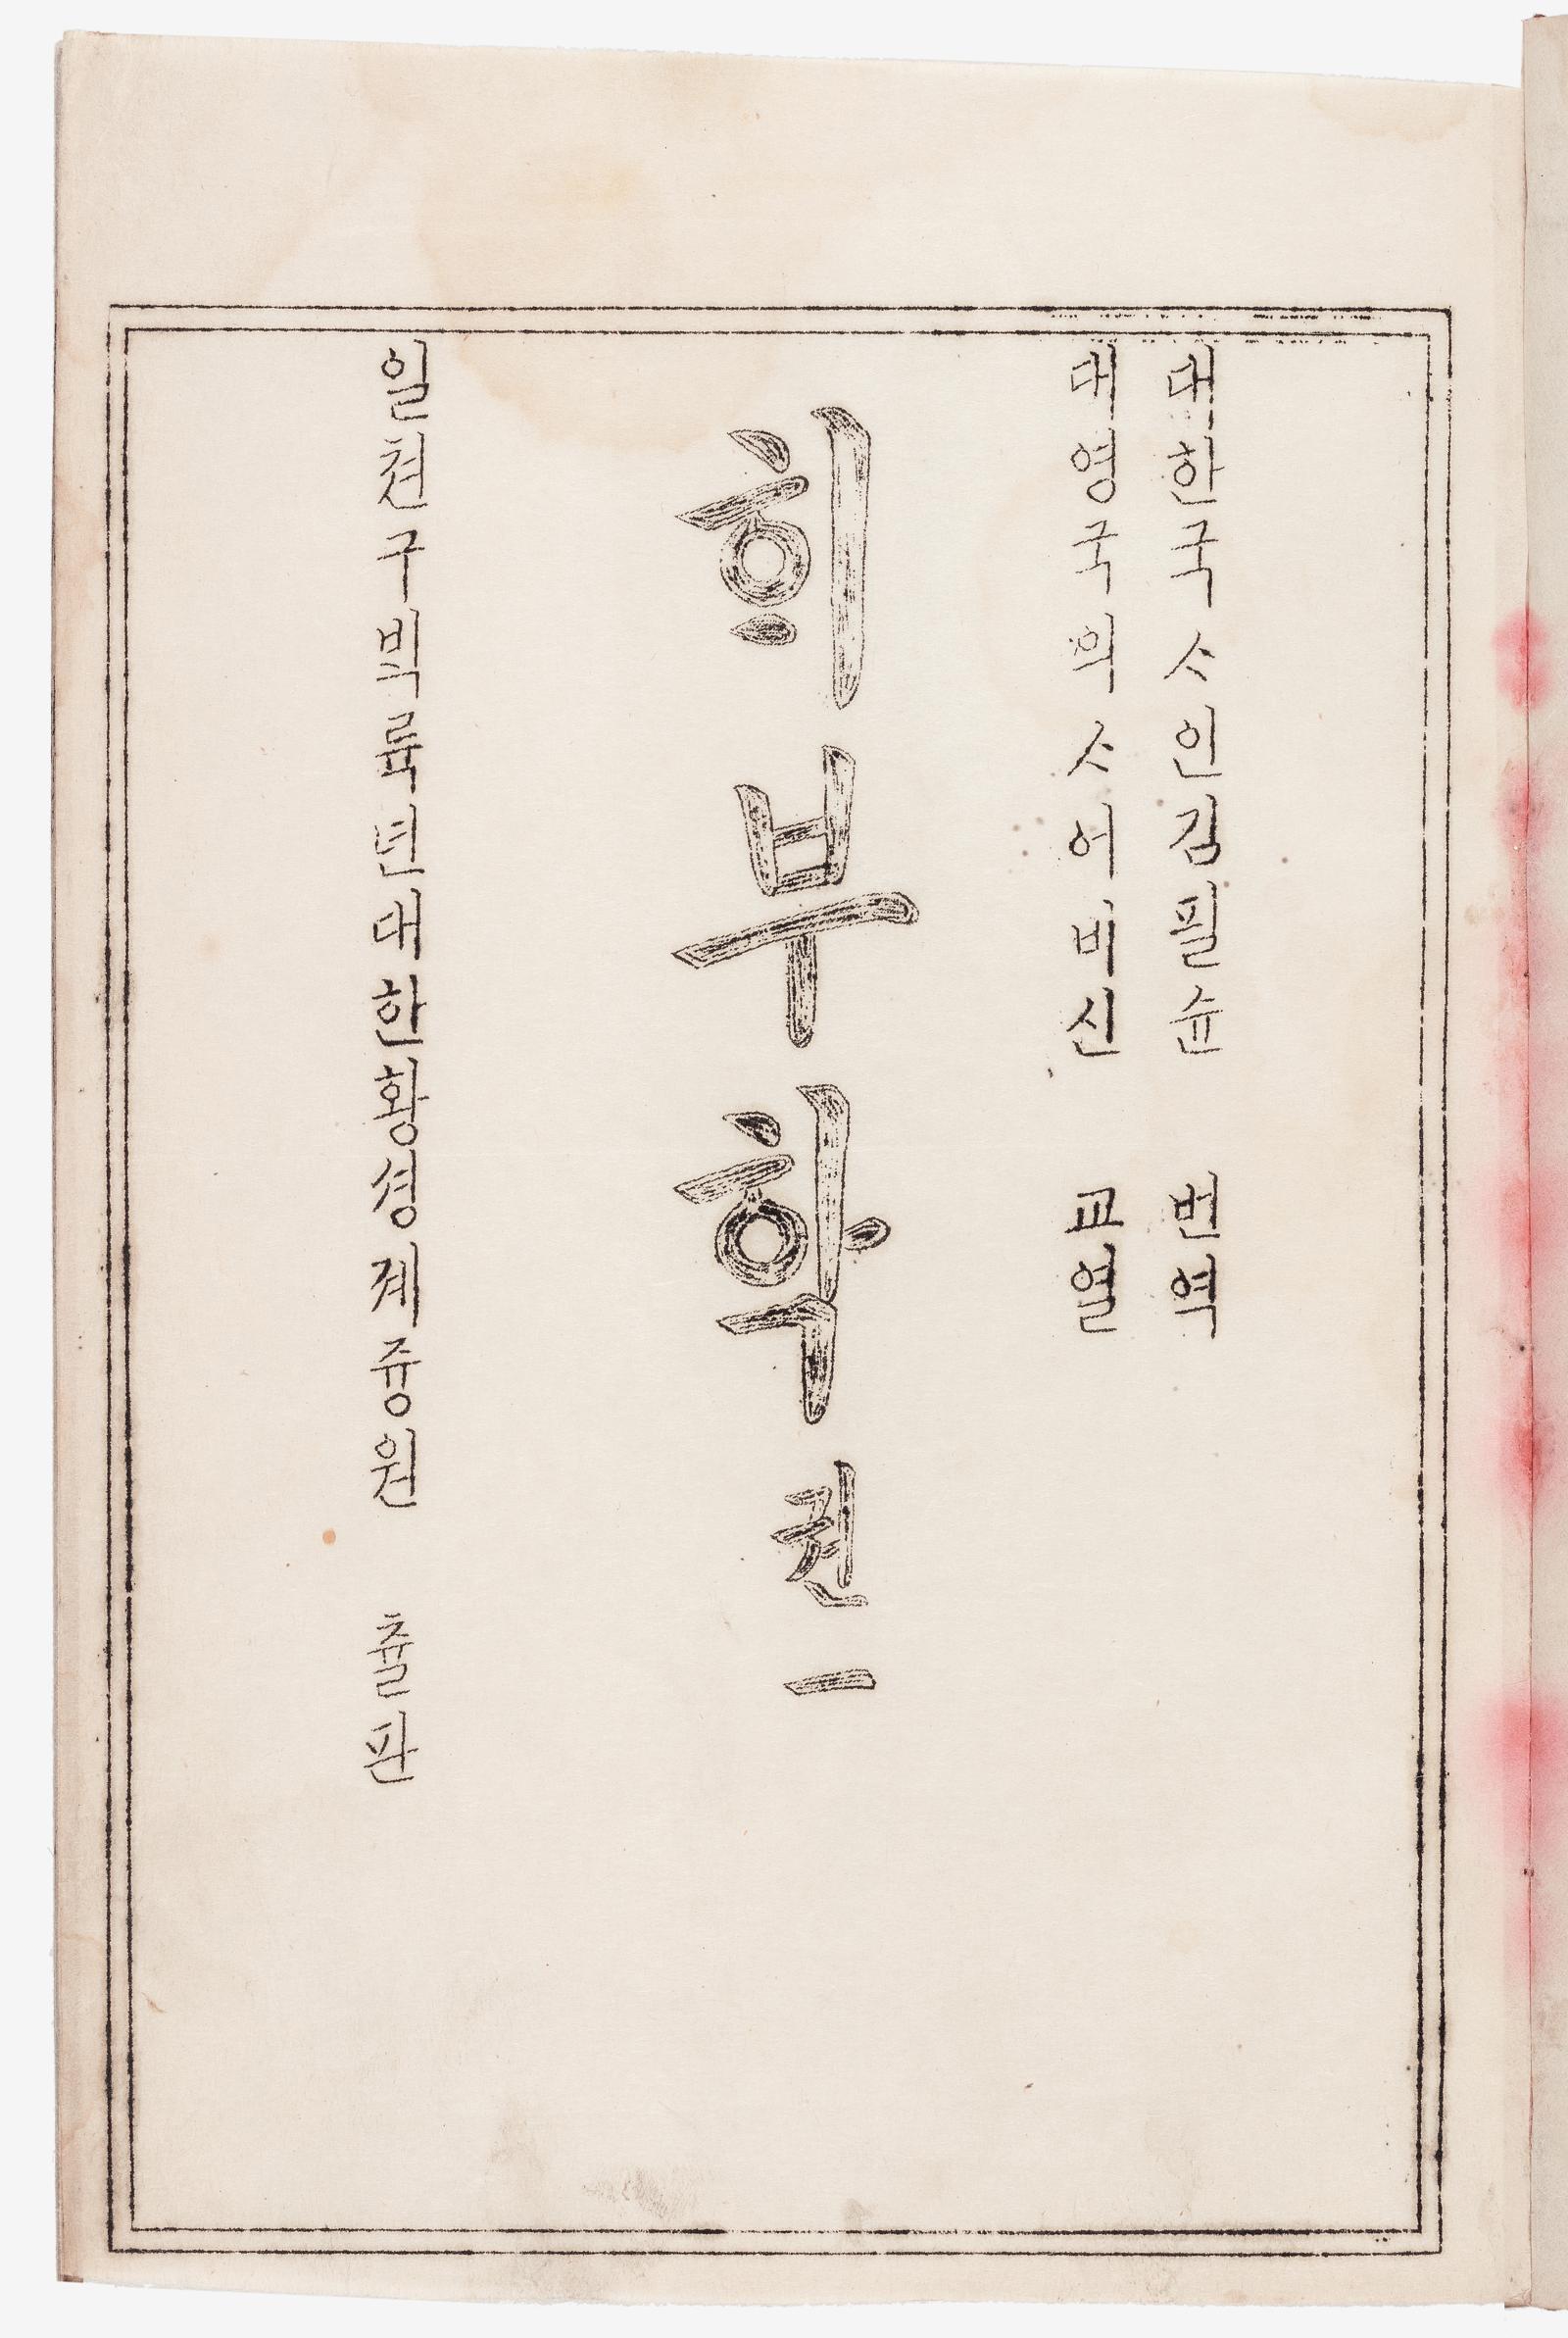 대한국ᄉᆞ인김필슌 번역
대영국의ᄉᆞ어비신 교열
ᄒᆡ부학 권一
일쳔구ᄇᆡᆨ륙년대한황셩졔즁원 츌판